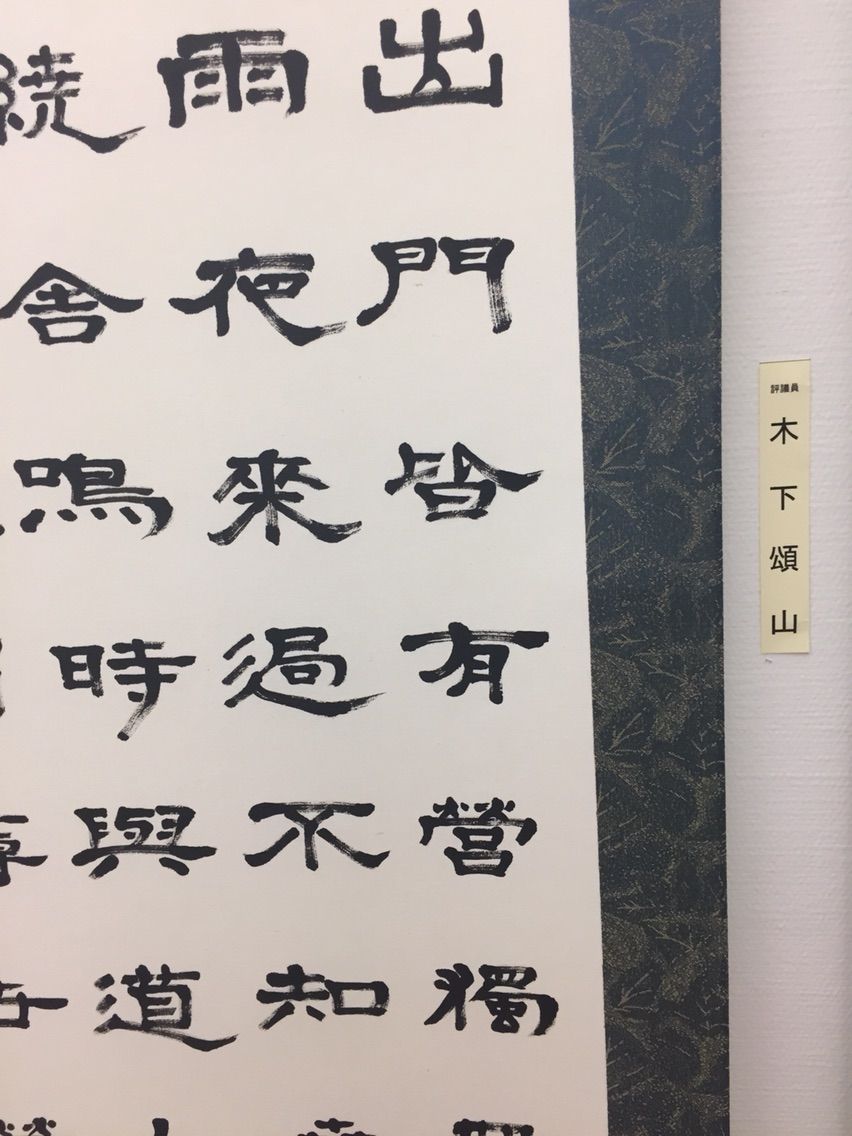 出門皆有營獨
雨夜來過不知
繞舍鳴時與道
評議員
木下頌山